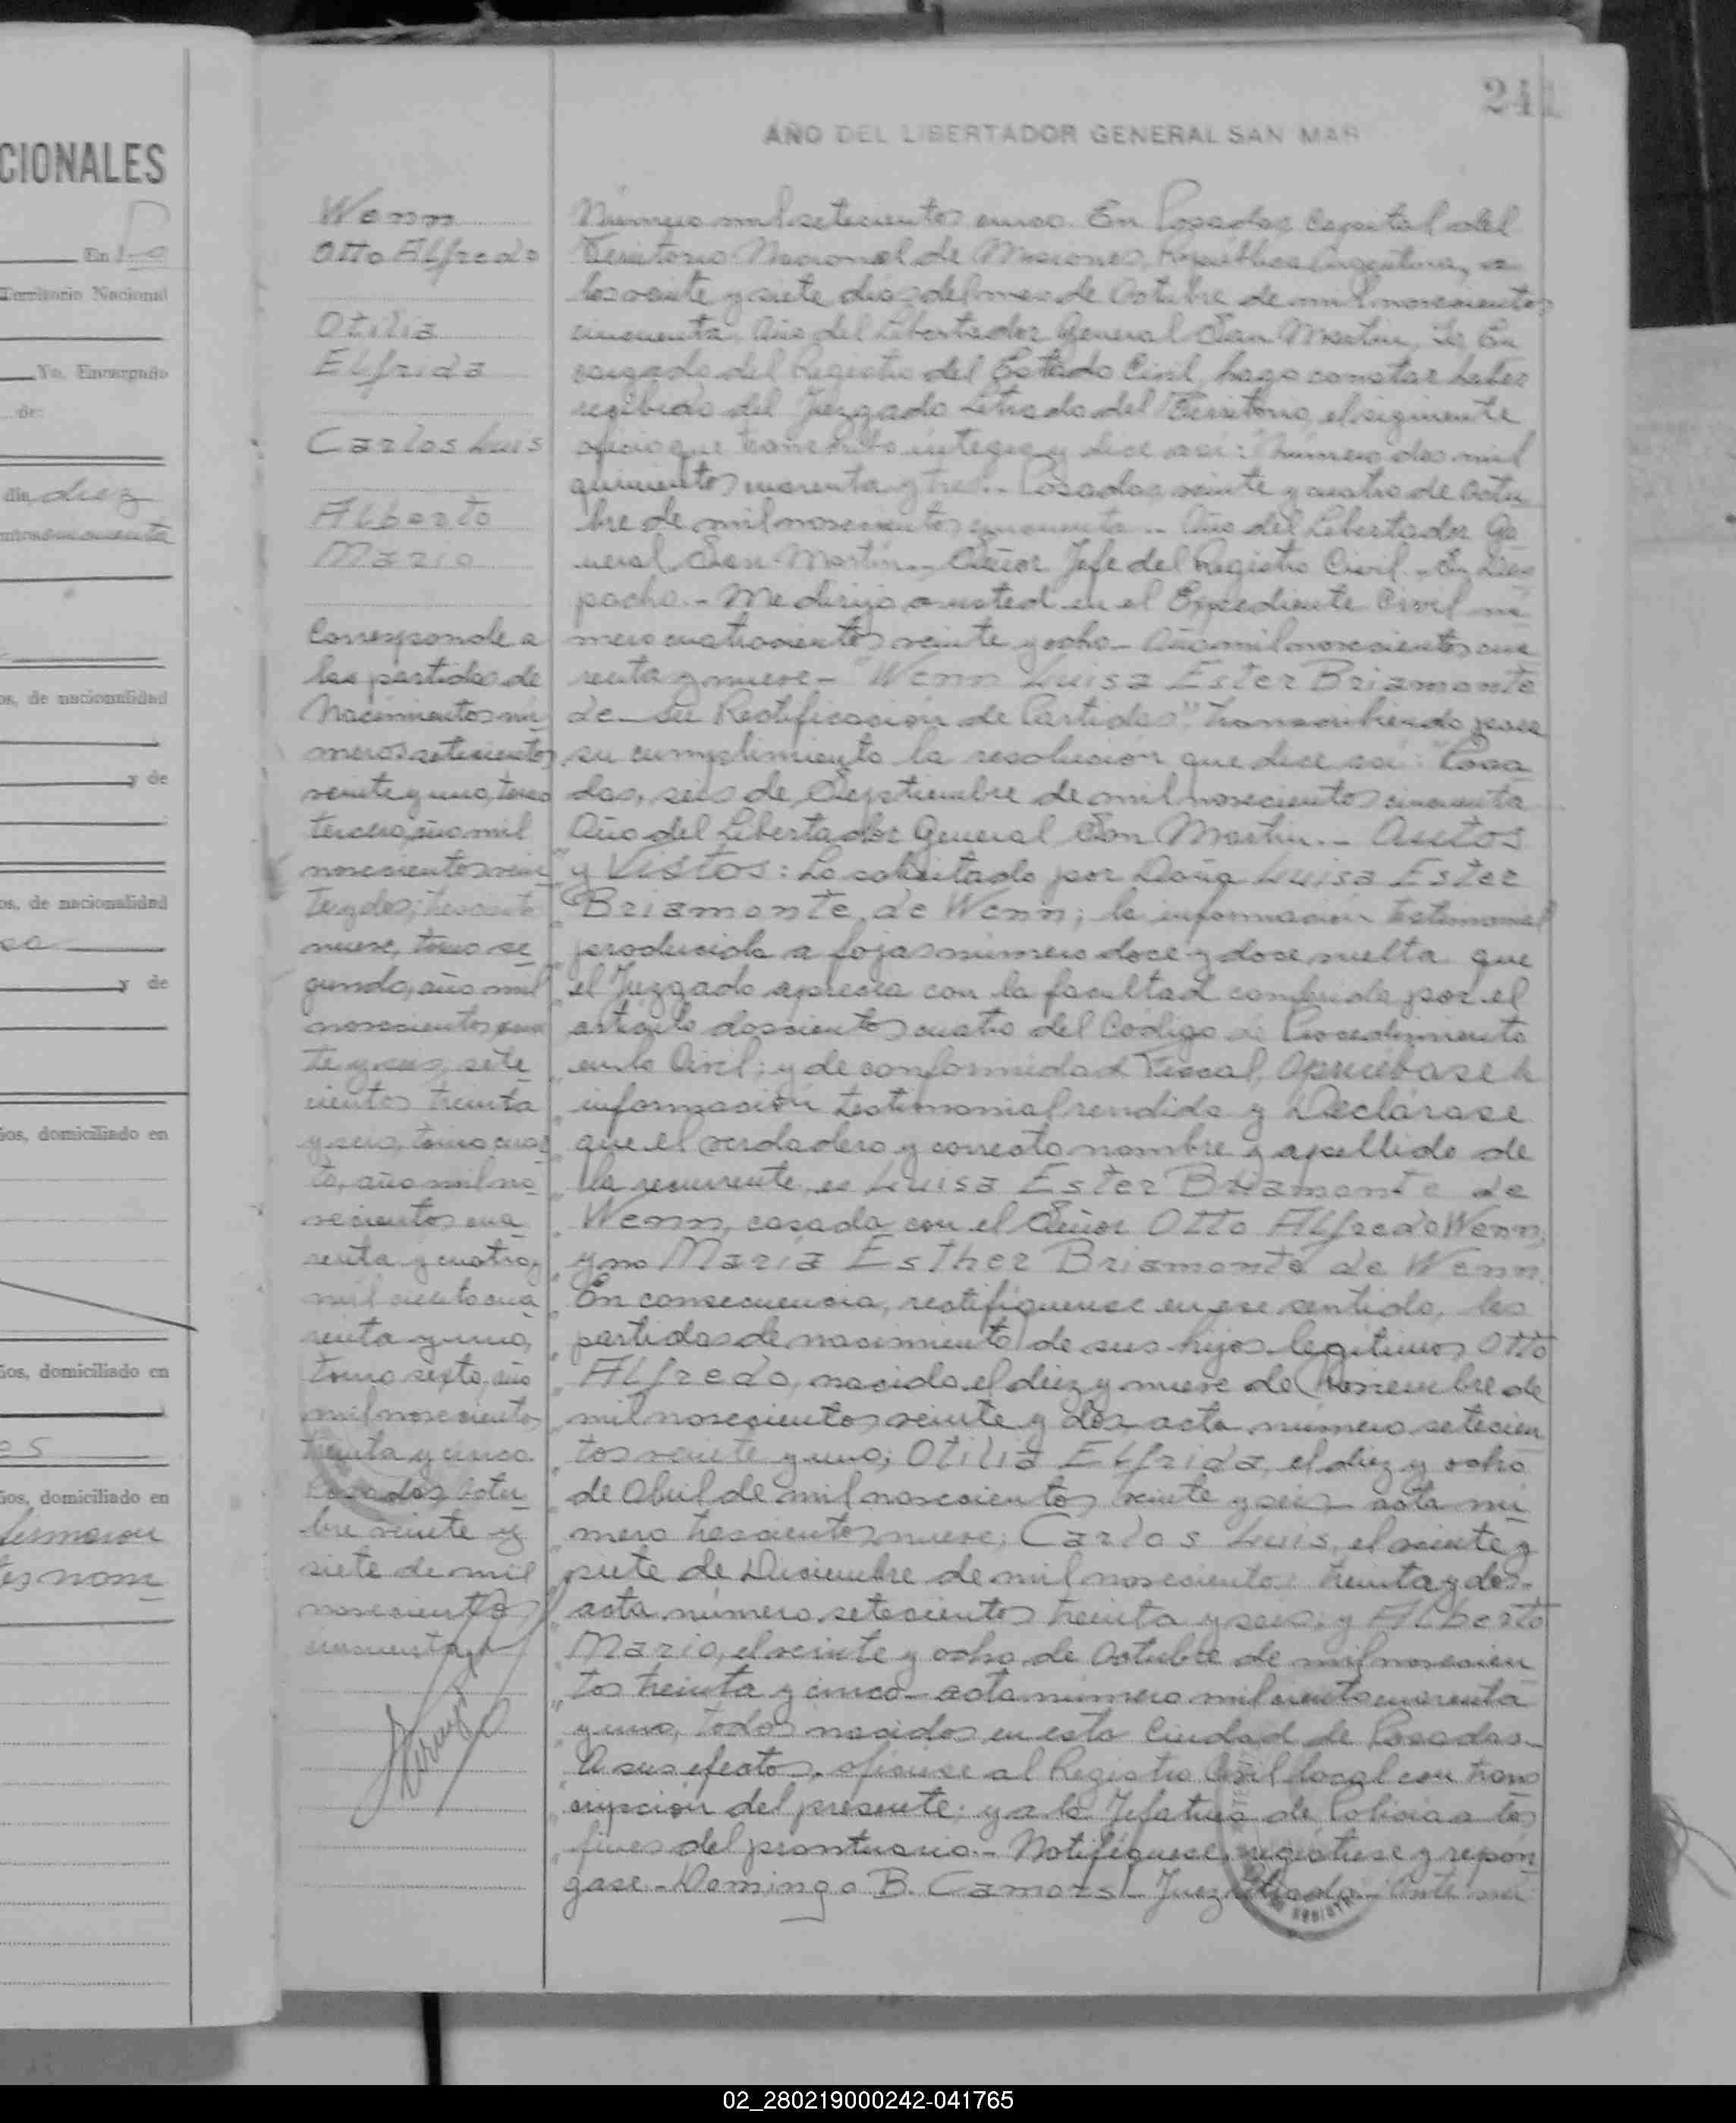 CIONALES
En
Territorio Nacional
Yo, Encargado
de:
día, diez
os, de nacionalidad
y de
os, de nacionalidad
y de
ños, domiciliado en
ños, domiciliado en
os
ños, domiciliado en
firmaron
241
AÑO DEL LIBERTADOR GENERAL SAN MAR
Wenn
Otto Alfredo
Otilia
Elfrida
Carlos Luis
Alberto
Mario
Corresponde a
las partidas de
Nacimientos nú
meros setecientos
veinte y uno, tomo
tercero, año mil
novecientos vein
te y dos; trescientos
nueve, tomo se
gundo, año mil
novecientos vein
te y seis, sete
cientos treinta
y seis, tomo cuar
to, año mil no
vecientos cua
renta y cuatro, y
mil ciento cua
renta y uno,
tomo sexto, año
mil novecientos
treinta y cinco.
Posadas, Octu
bre veinte y
siete de mil
novecientos
cincuenta
Número mil setecientos cinco. En Posadas Capital del
Territorio Nacional de Misiones, República Argentina, a
los veinte y siete días del mes de Octubre de mil novecientos
cincuenta, Año del Libertador General San Martín, Yo, En
cargado del Registro del Estado Civil, hago constar haber
recibido del Juzgado Letrado del Territorio, el siguiente
oficio que transcribo íntegro y dice así: "Número dos mil
quinientos cuarenta y tres.- Posadas, veinte y cuatro de Octu
bre de mil novecientos cincuenta.- Año del Libertador Ge
neral San Martín.- Señor Jefe del Registro Civil.- Su Des
pacho.- Me dirijo a usted en el Expediente Civil nú
mero cuatrocientos veinte y ocho- Año mil novecientos cua
renta y nueve- "Wenn Luisa Ester Briamonte
de- su Rectificación de Partidas" transcribiendo para
su cumplimiento la resolución que dice así: "Posa
das, seis de Septiembre de mil novecientos cincuenta
Año del Libertador General San Martín.- Autos
" y Vistos: Lo solicitado por Doña Luisa Ester
" Briamonte de Wenn; la información testimonial
" producida a fojas número doce y doce vuelta que
" el Juzgado aprecia con la facultad conferida por el
" artículo doscientos cuatro del Código de Procedimiento
" en lo Civil; y de conformidad Fiscal, Apruébase la
" información testimonial rendida y Declárase
" que el verdadero y correcto nombre y apellido de
" la recurrente es Luisa Ester Briamonte de
" Wenn, casada con el Señor Otto Alfredo Wenn,
" y no María Esther Briamonte de Wenn.
" En consecuencia, rectifíquense en ese sentido, las
" partidas de nacimiento de sus hijos legítimos Otto
" Alfredo, nacido el diez y nueve de Noviembre de
" mil novecientos veinte y dos, acta número setecien
" tos veinte y uno; Otilia Elfrida, el diez y ocho
" de Abril de mil novecientos veinte y seis- acta nú
" mero trescientos nueve; Carlos Luis, el veinte y
" siete de Diciembre de mil novecientos treinta y dos-
" acta número setecientos treinta y seis; y Alberto
" Mario, el veinte y ocho de Octubre de mil novecien
" tos treinta y cinco- acta número mil ciento cuarenta
" y uno, todos nacidos en esta Ciudad de Posadas.-
" A sus efectos, ofíciese al Registro Civil local con trans
" cripción del presente; y a la Jefatura de Policía a los
" fines del prontuario.- Notifíquese, regístrese y repón
gase.- Domingo B. Camors- Juez Letrado- Ante mí:
02_280219000242-041765